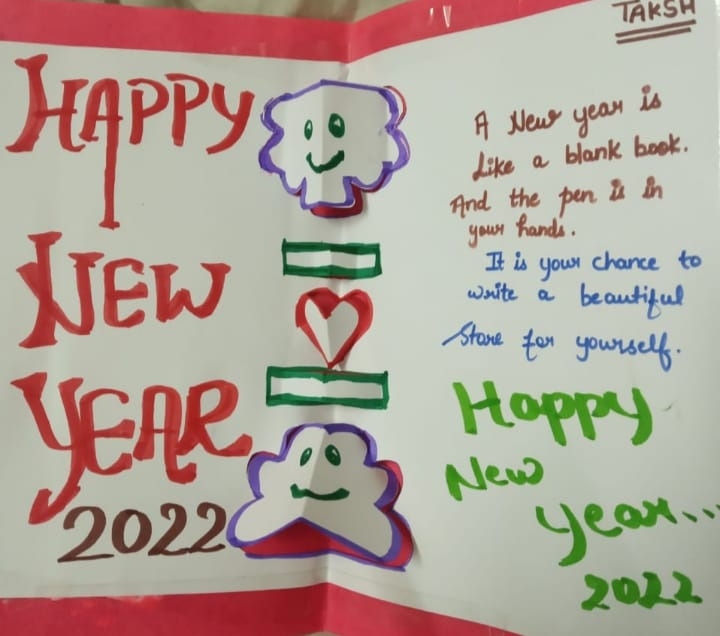 HAPPY
NEW
YEAR
2022
TAKSH
A New year is
like a blank book.
And the pen is in
your hands.
It is your chance to
write a beautiful
Store for yourself.
Happy
New
Year...
2022